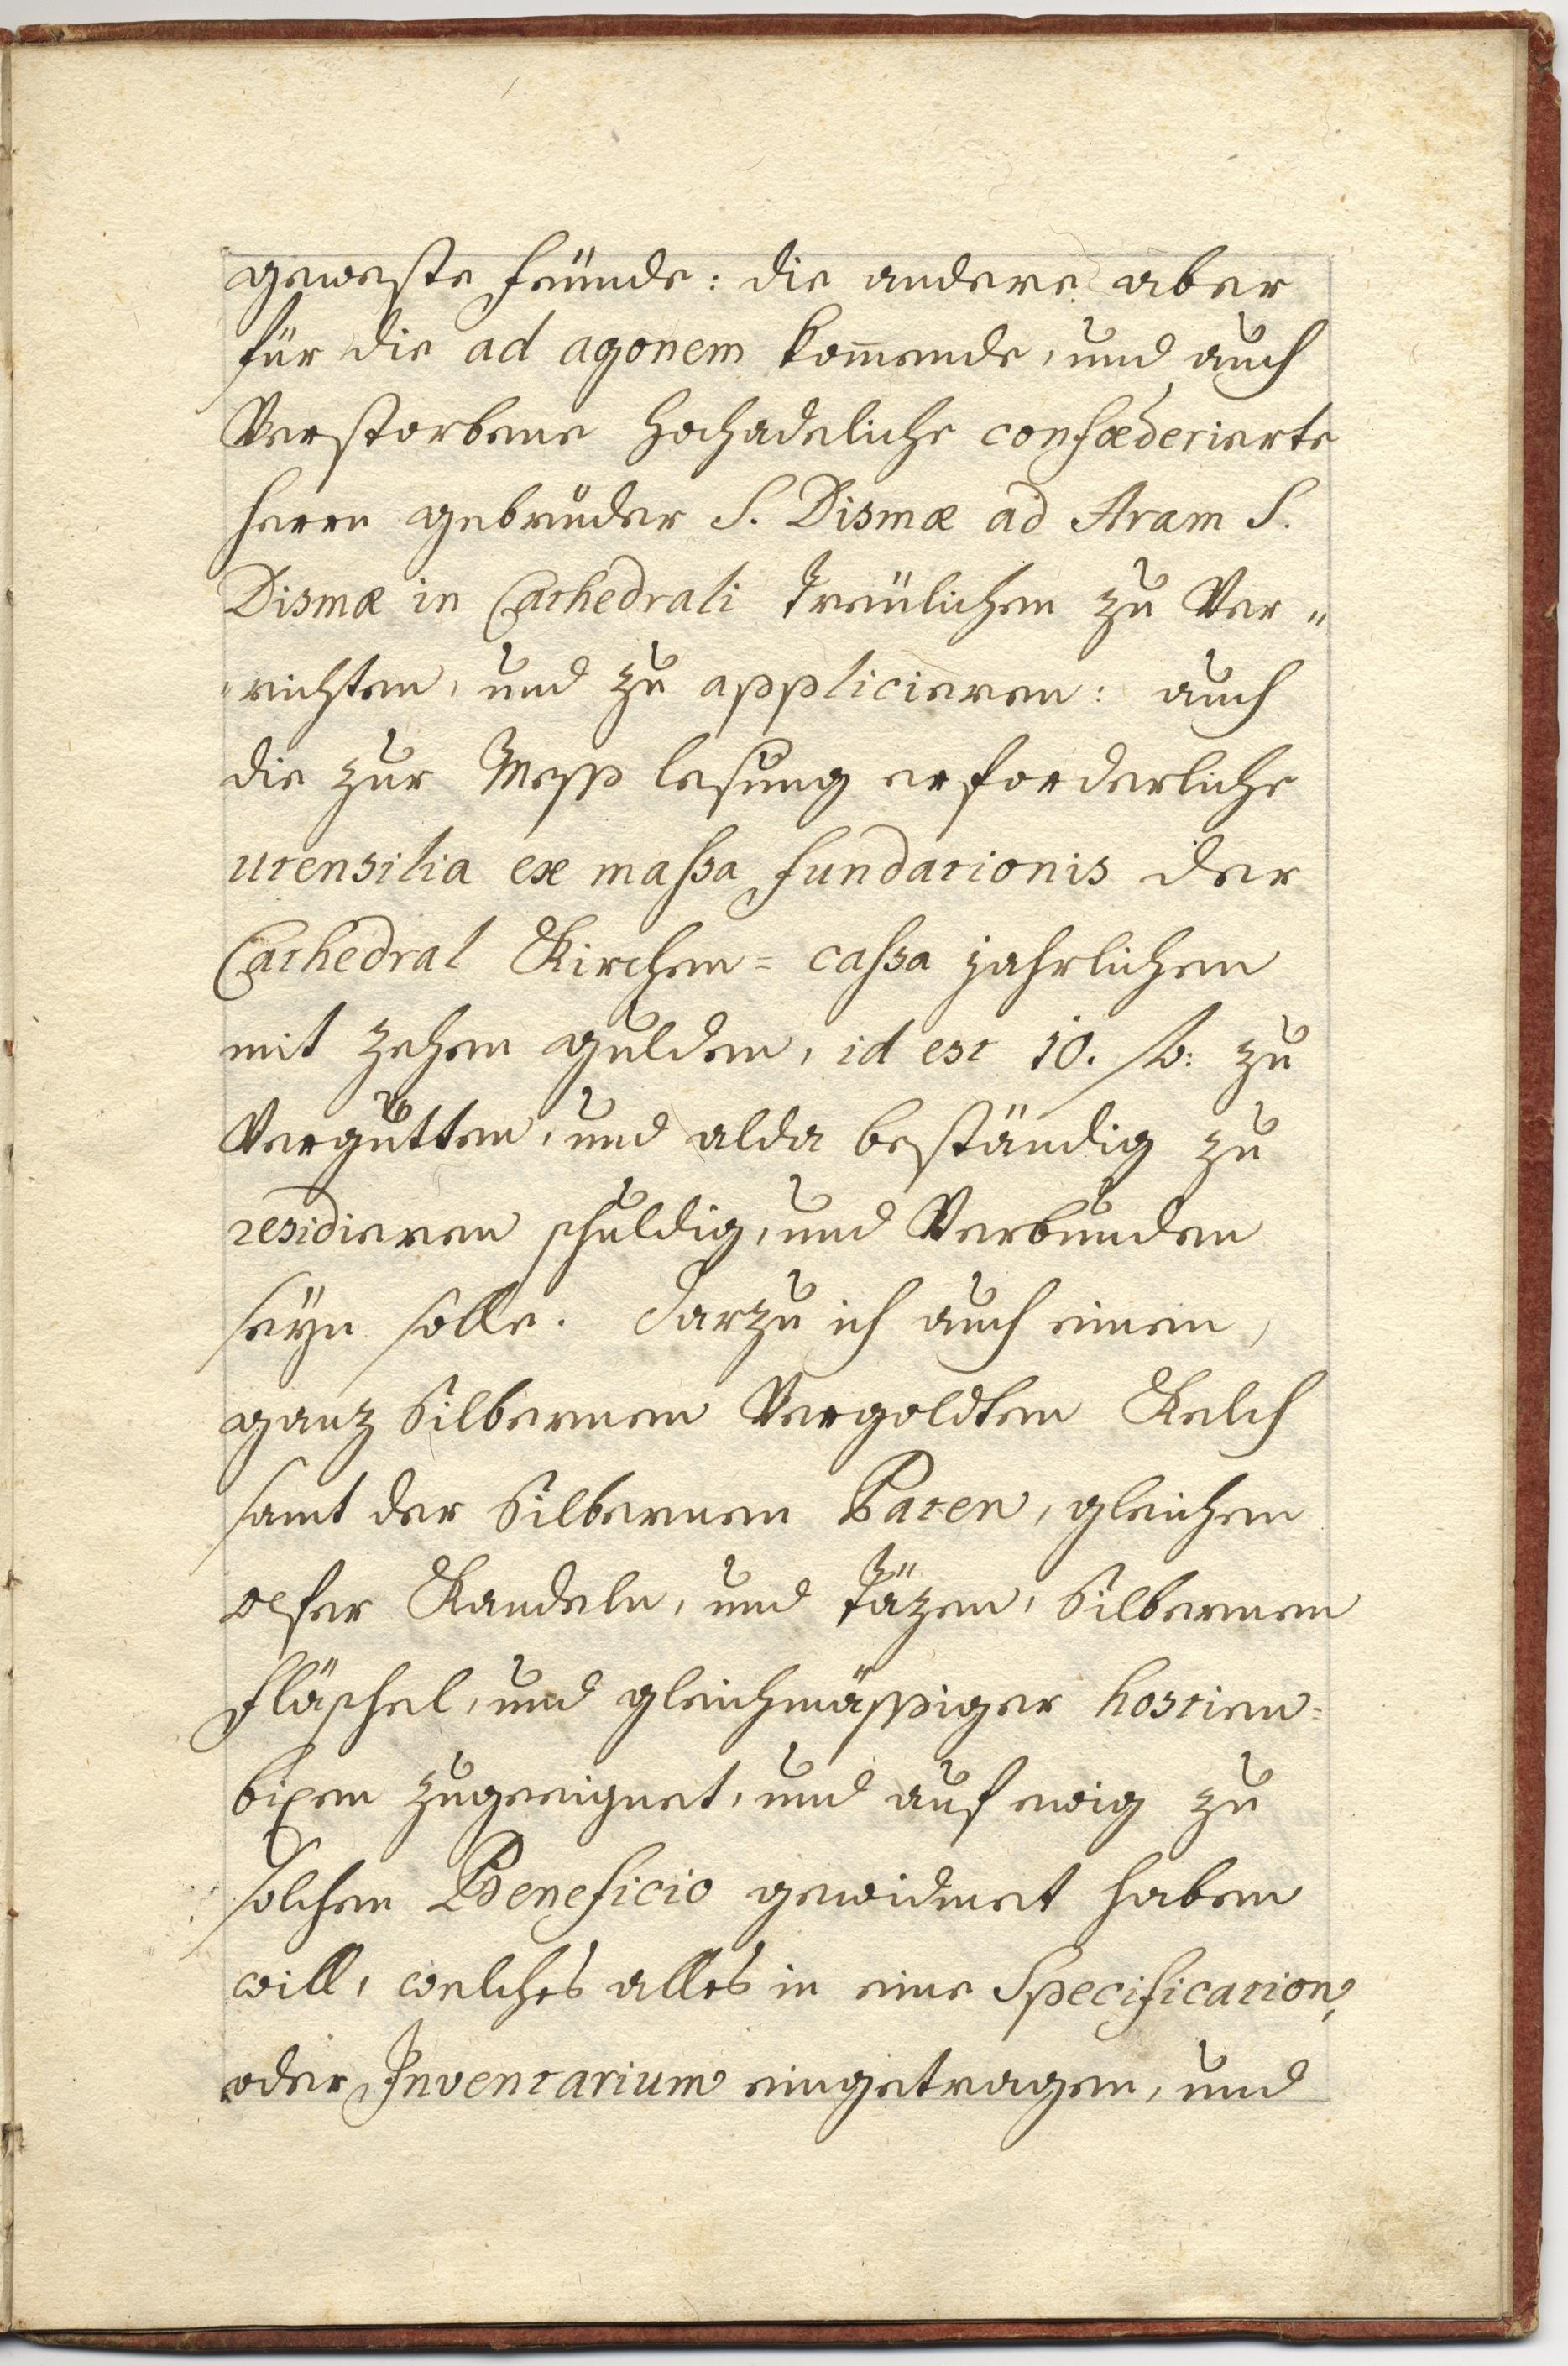 geweste freünde: die andere aber
für die ad agonem kom̄ende, und auch
Verstorbene Hochadeliche confœderierte
herrn gebrüder S. Dismæ ad Aram S.
Dismæ in Cathedrali treülichen zu Ver„
„richten, und zu applicieren: auch
die zur Mess lesung erforderliche
utensilia ex massa fundationis der
Cathedral Kirchen= cassa jahrlichen
mit zehen gulden, id est 10. fl: zu
Vergütten, und alda beständig zu
residieren schuldig, und Verbunden
seyn solle. Darzu ich auch einen,
ganz Silbernen Vergoldten Kelch
samt der Silbernen Paten, gleichen
opfer Kandeln, und Täzen, Silbernen
fläschel, und gleichmässiger hostien=
bixen zugeeignet, und auf ewig zu
solchen Beneficio gewidmet haben
will, welches alles in eine Specification,
oder Inventarium eingetragen, und